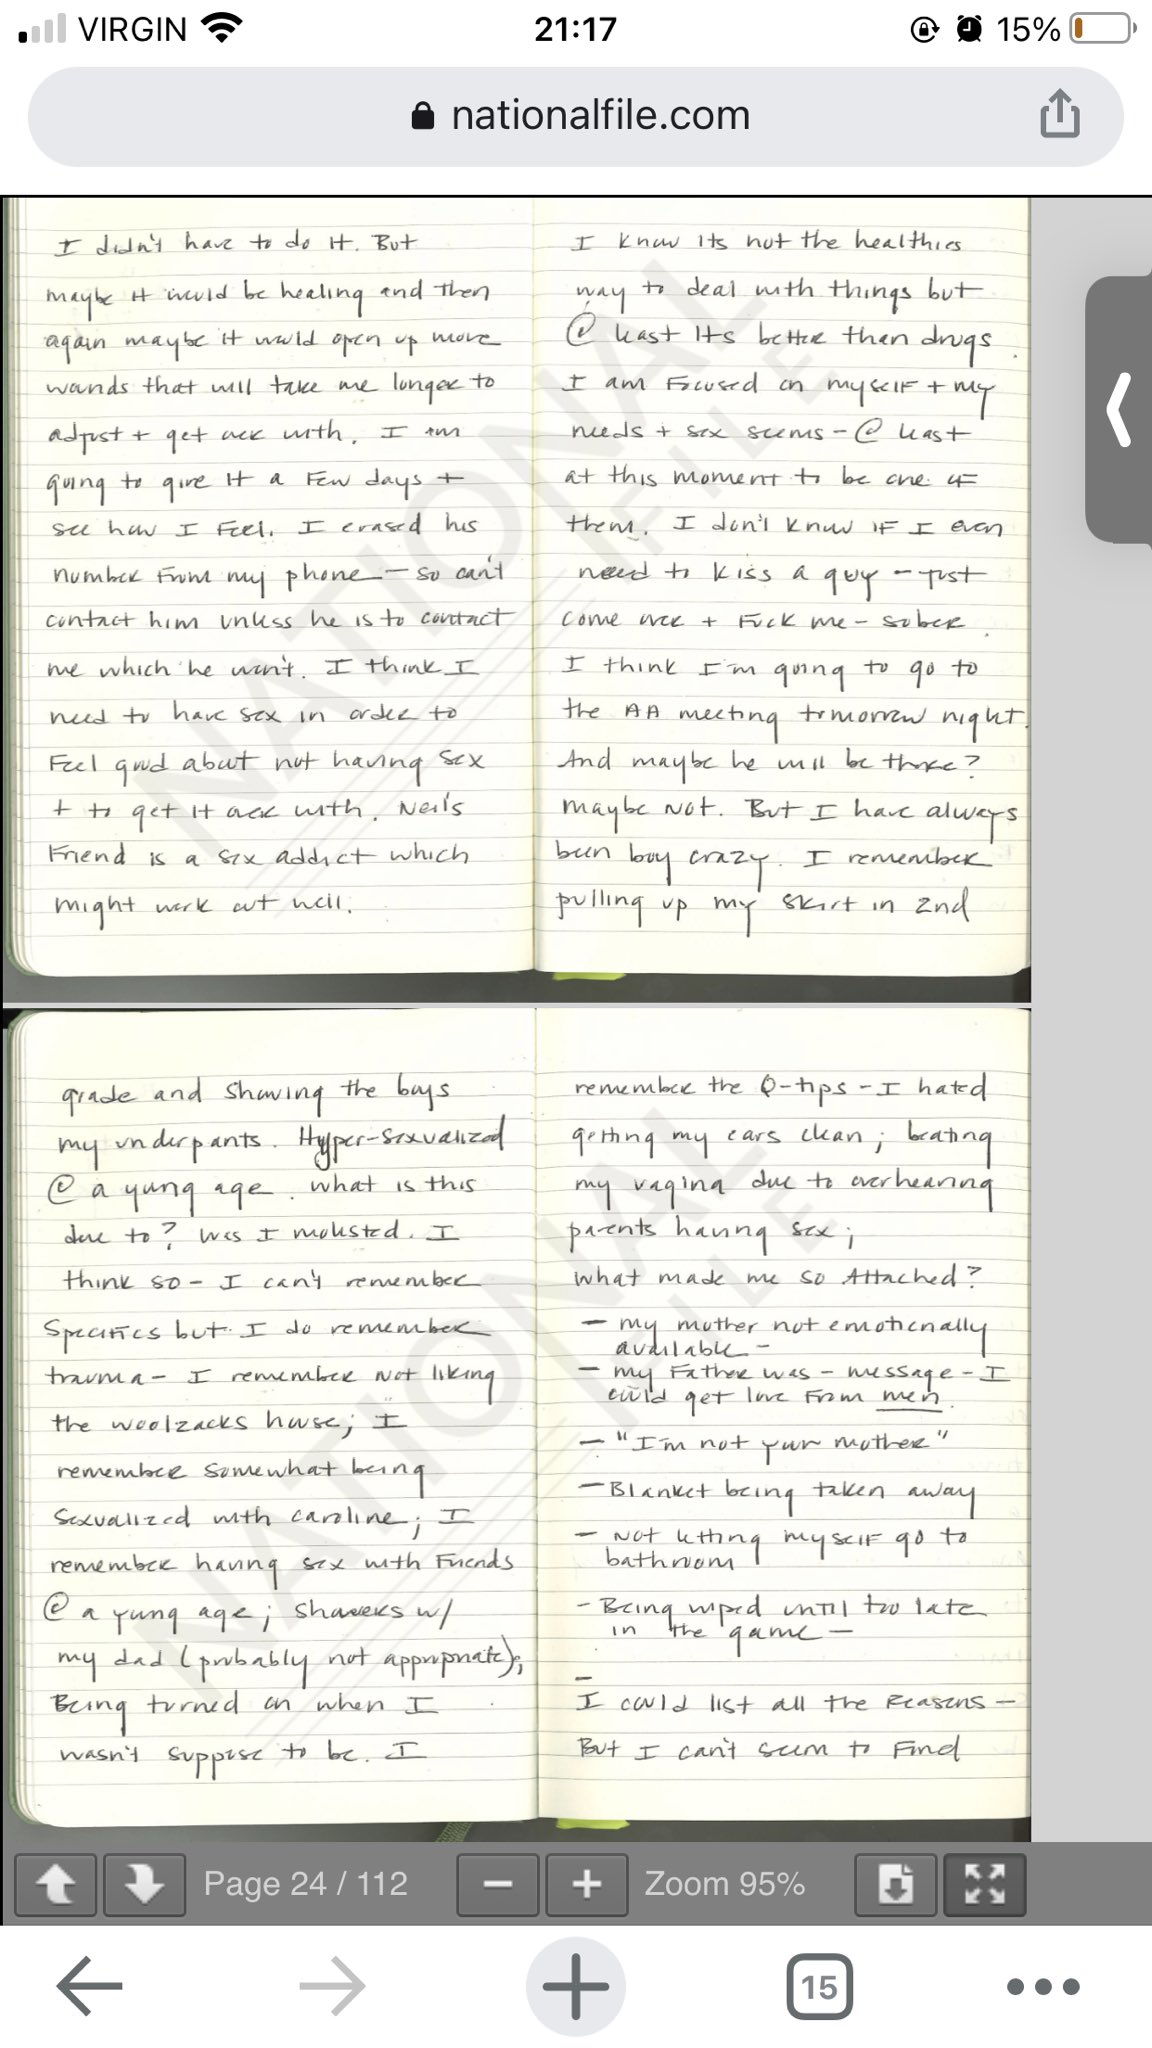 VIRGIN
21:17
15%
nationalfile.com
I didn't have to do it. But
maybe it would be healing and then
again maybe it would open up more
wounds that will take me longer to
adjust + get over with. I am
going to give it a few days +
see how I feel. I erased his
number from my phone - so can't
contact him unless he is to contact
me which he won't. I think I
need to have sex in order to
feel good about not having sex
+ to get it over with. Neil's
friend is a sex addict which
might work out well.
I know its not the healthies
way to deal with things but
@ least its better than drugs.
I am focused on myself + my
needs + sex seems - @ least
at this moment to be one of
them. I don't know if I even
need to kiss a guy - just
come over + fuck me - sober.
I think I'm going to go to
the AA meeting tomorrow night.
And maybe he will be there?
maybe not. But I have always
been boy crazy. I remember
pulling up my skirt in 2nd
grade and showing the boys
my underpants. Hyper-sexualized
@ a young age. what is this
due to? Was I molested. I
think so - I can't remember
specifics but I do remember
trauma - I remember not liking
the woolzacks house; I
remember somewhat being
sexualized with caroline; I
remember having sex with friends
@ a young age; showers w/
my dad (probably not appropriate);
Being turned on when I
wasn't suppose to be. I
remember the Q-tips - I hated
getting my ears clean; beating
my vagina due to overhearing
parents having sex;
What made me so Attached?
- my mother not emotionally
available -
- my Father was - message - I
could get love from men.
- "I'm not your mother"
- Blanket being taken away
- Not letting myself go to
bathroom
- Being wiped until too late
in the game -
-
I could list all the Reasons -
But I can't seem to find
Page 24 / 112
Zoom 95%
15
NATIONAL FILE
NATIONAL FILE